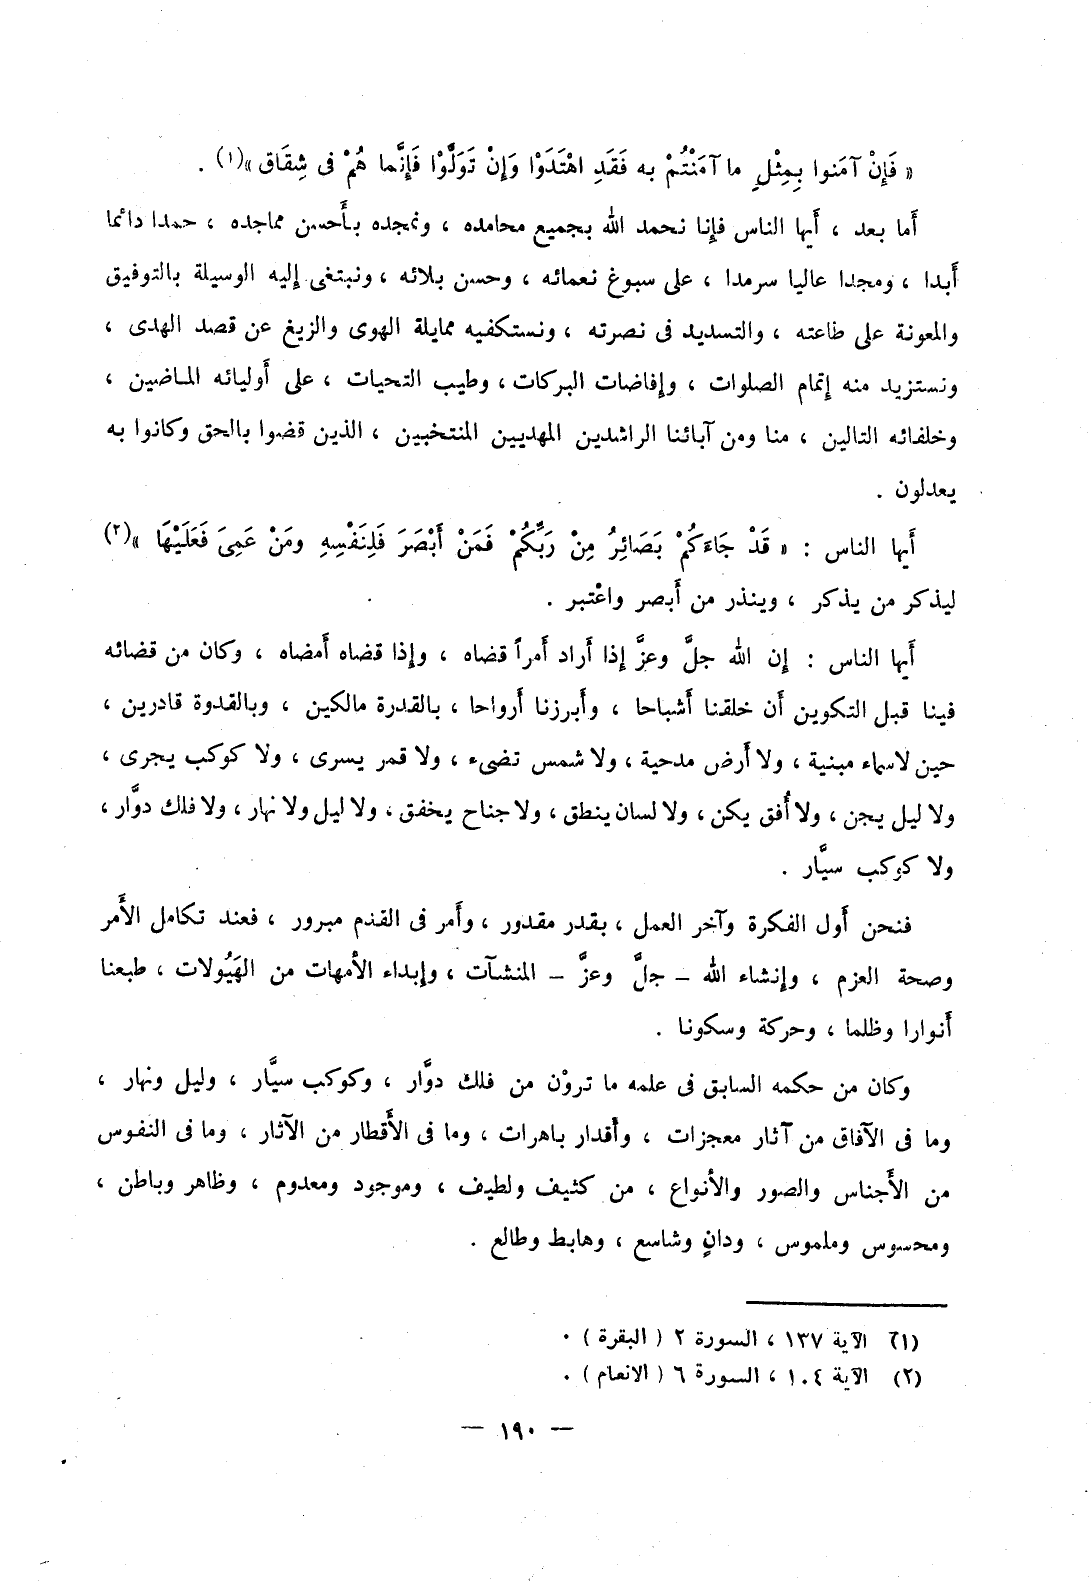 « فَإِنْ آمَنوا بِمِثْلِ ما آمَنْتُمْ به فَقَدِ اهْتَدَوْا وَإِنْ تَوَلَّوْا فَإِنَّما هُمْ فى شِقَاق »(١) .
أما بعد ، أيها الناس فإنا نحمد الله بجميع محامده ، ونمجده بأحسن مماجده ، حمدا دائما
أبدا ، ومجدا عاليا سرمدا ، على سبوغ نعمائه ، وحسن بلائه ، ونبتغى إليه الوسيلة بالتوفيق
والمعونة على طاعته ، والتسديد فى نصرته ، ونستكفيه ممايلة الهوى والزيغ عن قصد الهدى ،
ونستزيد منه إتمام الصلوات ، وإفاضات البركات ، وطيب التحيات ، على أوليائه الماضين ،
وخلفائه التالين ، منا ومن آبائنا الراشدين المهديين المنتخبين ، الذين قضوا بالحق وكانوا به
يعدلون .
أيها الناس : « قَدْ جَاءَكُمْ بَصَائِرُ مِنْ رَبِّكُمْ فَمَنْ أَبْصَرَ فَلِنَفْسِهِ ومَنْ عَمِىَ فَعَلَيْهَا »(٢)
ليذكر من يذكر ، وينذر من أبصر واعْتبر .
أيها الناس : إن الله جلَّ وعزَّ إذا أراد أمراً قضاه ، وإذا قضاه أمضاه ، وكان من قضائه
فينا قبل التكوين أن خلقنا أشباحا ، وأبرزنا أرواحا ، بالقدرة مالكين ، وبالقدوة قادرين ،
حين لاسماء مبنية ، ولا أرض مدحية ، ولا شمس تضىء ، ولا قمر يسرى ، ولا كوكب يجرى ،
ولا ليل يجن ، ولا أُفق يكن ، ولا لسان ينطق ، ولا جناح يخفق ، ولا ليل ولا نهار ، ولا فلك دوَّار ،
ولا كوكب سيَّار .
فنحن أول الفكرة وآخر العمل ، بقدر مقدور ، وأمر فى القدم مبرور ، فعند تكامل الأمر
وصحة العزم ، وإنشاء الله – جلَّ وعزَّ – المنشآت ، وإبداء الأمهات من الهَيُولات ، طبعنا
أنوارا وظلما ، وحركة وسكونا .
وكان من حكمه السابق فى علمه ما تروْن من فلك دوَّار ، وكوكب سيَّار ، وليل ونهار ،
وما فى الآفاق من آثار معجزات ، وأقدار باهرات ، وما فى الأقطار من الآثار ، وما فى النفوس
من الأجناس والصور والأنواع ، من كثيف ولطيف ، وموجود ومعدوم ، وظاهر وباطن ،
ومحسوس وملموس ، ودانٍ وشاسع ، وهابط وطالع .
(١) الآية ١٣٧ ، السورة ٢ ( البقرة ) .
(٢) الآية ١٠٤ ، السورة ٦ ( الانعام ) .
— ١٩٠ —